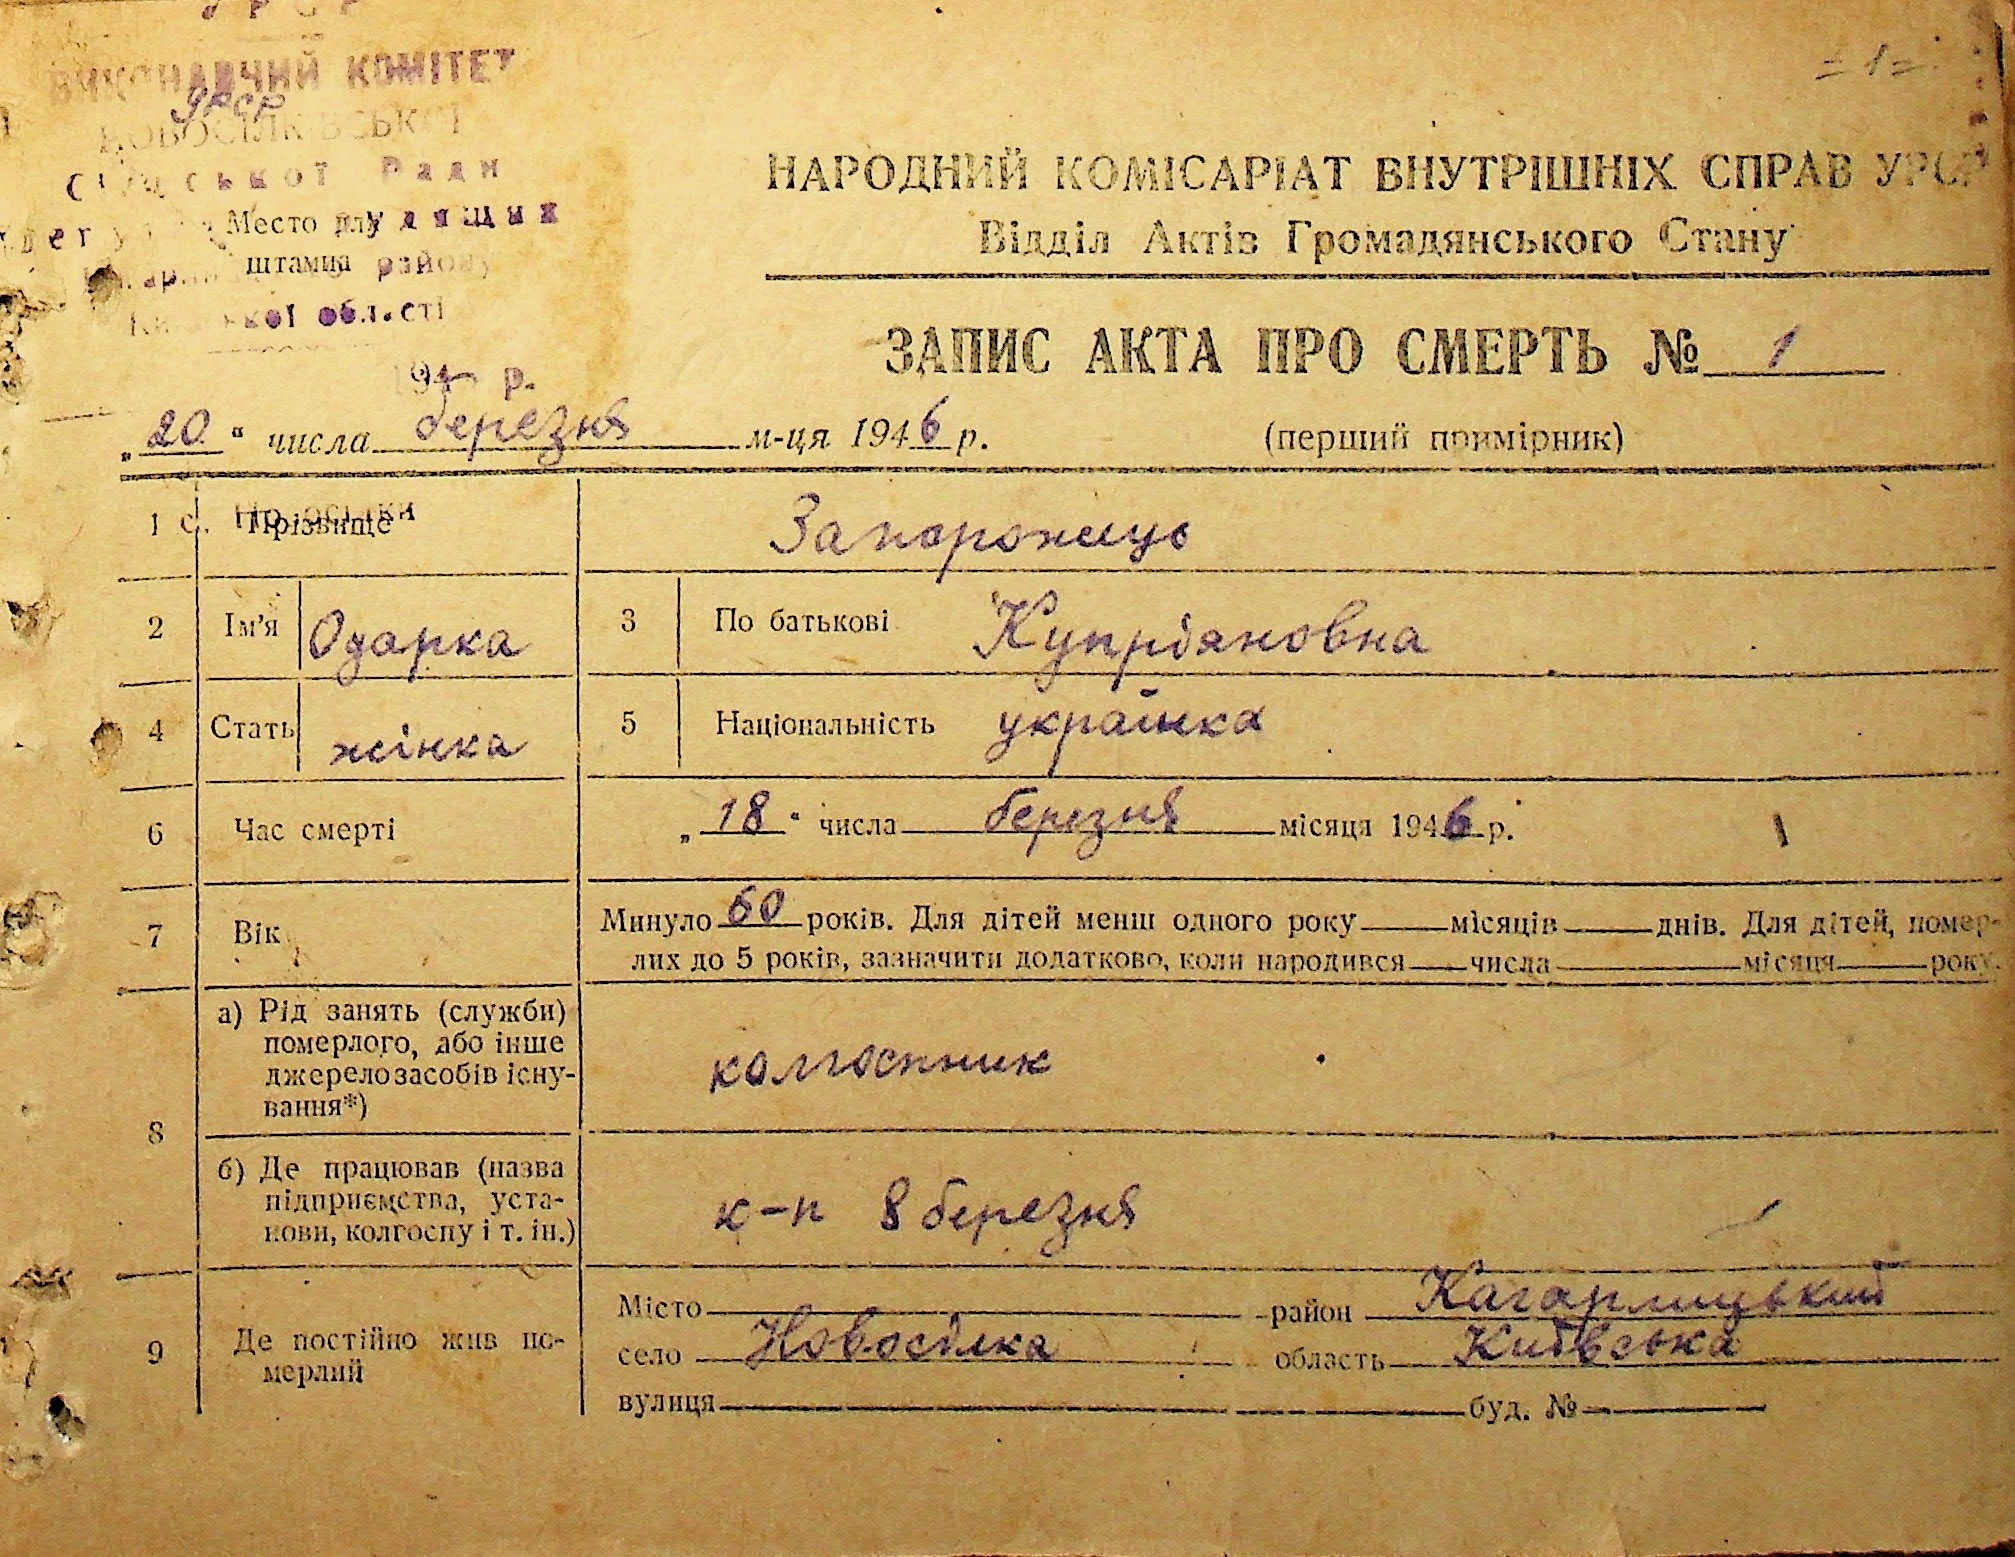 УРСР
ВИКОНАВЧИЙ КОМІТЕТ
УРСР
НОВОСІЛКІВСЬКОЇ
Сільської Ради
Место для
штампа району
Київської області
194 р.
= 1 =
НАРОДНИЙ КОМІСАРІАТ ВНУТРІШНІХ СПРАВ УРСР
Відділ Актів Громадянського Стану
ЗАПИС АКТА ПРО СМЕРТЬ № 1
„20“ числа березня м-ця 1946 р. (перший примірник)
1 Прізвище Запорожець
2 Ім'я Одарка 3 По батькові Купріяновна
4 Стать жінка 5 Національність українка
6 Час смерті „18“ числа березня місяця 1946 р.
7 Вік Минуло 60 років. Для дітей менш одного року місяців днів. Для дітей, помер-
лих до 5 років, зазначити додатково, коли народився числа місяця року.
8 а) Рід занять (служби)
померлого, або інше
джерело засобів існу-
вання*) колгоспник
б) Де працював (назва
підприємства, уста-
нови, колгоспу і т. ін.) к-п 8 березня
9 Де постійно жив по-
мерлий
Місто район Кагарлицький
село Новосілка область Київська
вулиця буд. №